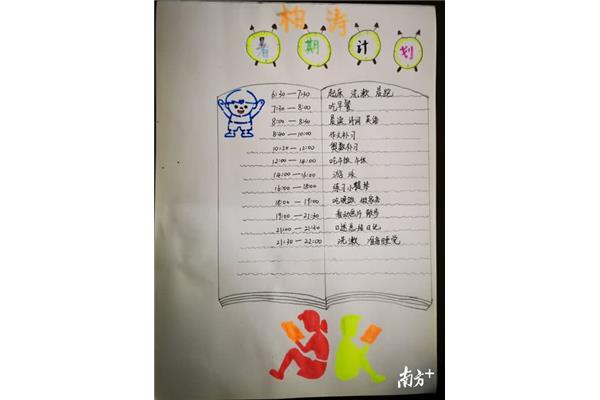 柏涛
暑期计划
6:30—7:30 起床 洗漱 晨跑
7:30—8:00 吃早餐
8:00—8:40 晨读 诗词 英语
8:40—10:00 作文补习
10:20—12:00 奥数补习
12:00—14:00 吃午饭 午休
14:00—16:00 游泳
16:00—18:00 练习小提琴
18:00—19:00 吃晚饭 做家务
19:00—21:30 看动画片 散步
21:00—21:30 总结日记
21:30—22:00 洗漱 准备睡觉
南方+